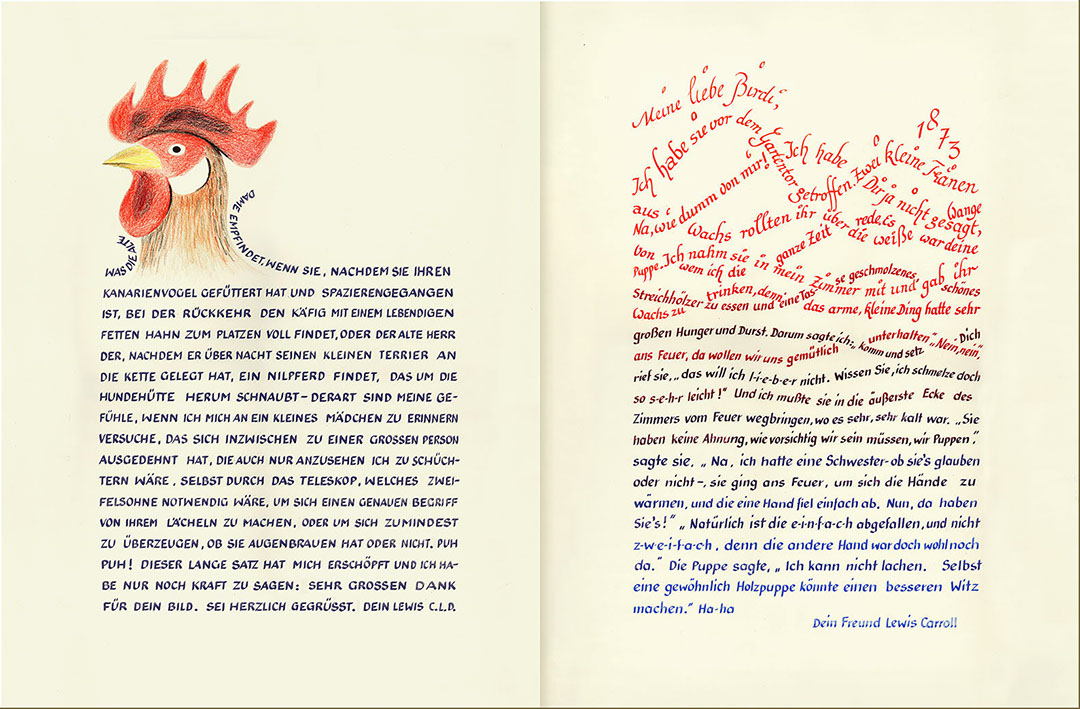 WAS DIE ALTE
DAME EMPFINDET, WENN SIE, NACHDEM SIE IHREN
KANARIENVOGEL GEFÜTTERT HAT UND SPAZIERENGEGANGEN
IST, BEI DER RÜCKKEHR DEN KÄFIG MIT EINEM LEBENDIGEN
FETTEN HAHN ZUM PLATZEN VOLL FINDET, ODER DER ALTE HERR
DER, NACHDEM ER ÜBER NACHT SEINEN KLEINEN TERRIER AN
DIE KETTE GELEGT HAT, EIN NILPFERD FINDET, DAS UM DIE
HUNDEHÜTTE HERUM SCHNAUBT – DERART SIND MEINE GE-
FÜHLE, WENN ICH MICH AN EIN KLEINES MÄDCHEN ZU ERINNERN
VERSUCHE, DAS SICH INZWISCHEN ZU EINER GROSSEN PERSON
AUSGEDEHNT HAT, DIE AUCH NUR ANZUSEHEN ICH ZU SCHÜCH-
TERN WÄRE, SELBST DURCH DAS TELESKOP, WELCHES ZWEI-
FELSOHNE NOTWENDIG WÄRE, UM SICH EINEN GENAUEN BEGRIFF
VON IHREM LÄCHELN ZU MACHEN, ODER UM SICH ZUMINDEST
ZU ÜBERZEUGEN, OB SIE AUGENBRAUEN HAT ODER NICHT. PUH
PUH! DIESER LANGE SATZ HAT MICH ERSCHÖPFT UND ICH HA-
BE NUR NOCH KRAFT ZU SAGEN: SEHR GROSSEN DANK
FÜR DEIN BILD. SEI HERZLICH GEGRÜSST. DEIN LEWIS C.L.D.
Meine liebe Birdi,
1873
Ich habe sie vor dem Gartentor getroffen. Zwei kleine Tränen
aus Wachs rollten ihr über die weiße Wange
Na, wie dumm von mir! Ich habe Dir ja nicht gesagt,
von wem ich die ganze Zeit rede. Es war deine
Puppe. Ich nahm sie in mein Zimmer mit und gab ihr
Streichhölzer zu essen und eine Tasse geschmolzenes, schönes
Wachs zu trinken, denn das arme, kleine Ding hatte sehr
großen Hunger und Durst. Darum sagte ich: „komm und setz Dich
ans Feuer, da wollen wir uns gemütlich unterhalten„ „Nein, nein,“
rief sie, „das will ich l-i-e-b-e-r nicht. Wissen Sie, ich schmelze doch
so s-e-h-r leicht!“ Und ich mußte sie in die äußerste Ecke des
Zimmers vom Feuer wegbringen, wo es sehr, sehr kalt war. „Sie
haben keine Ahnung, wie vorsichtig wir sein müssen, wir Puppen“,
sagte sie. „Na, ich hatte eine Schwester-ob sie's glauben
oder nicht-, sie ging ans Feuer, um sich die Hände zu
wärmen, und die eine Hand fiel einfach ab. Nun, da haben
Sie's!“ „Natürlich ist die e-i-n-f-a-c-h abgefallen, und nicht
z-w-e-i-f-a-c-h, denn die andere Hand war doch wohl noch
da.“ Die Puppe sagte, „Ich kann nicht lachen. Selbst
eine gewöhnlich Holzpuppe könnte einen besseren Witz
machen.“ Ha-ha
Dein Freund Lewis Carroll